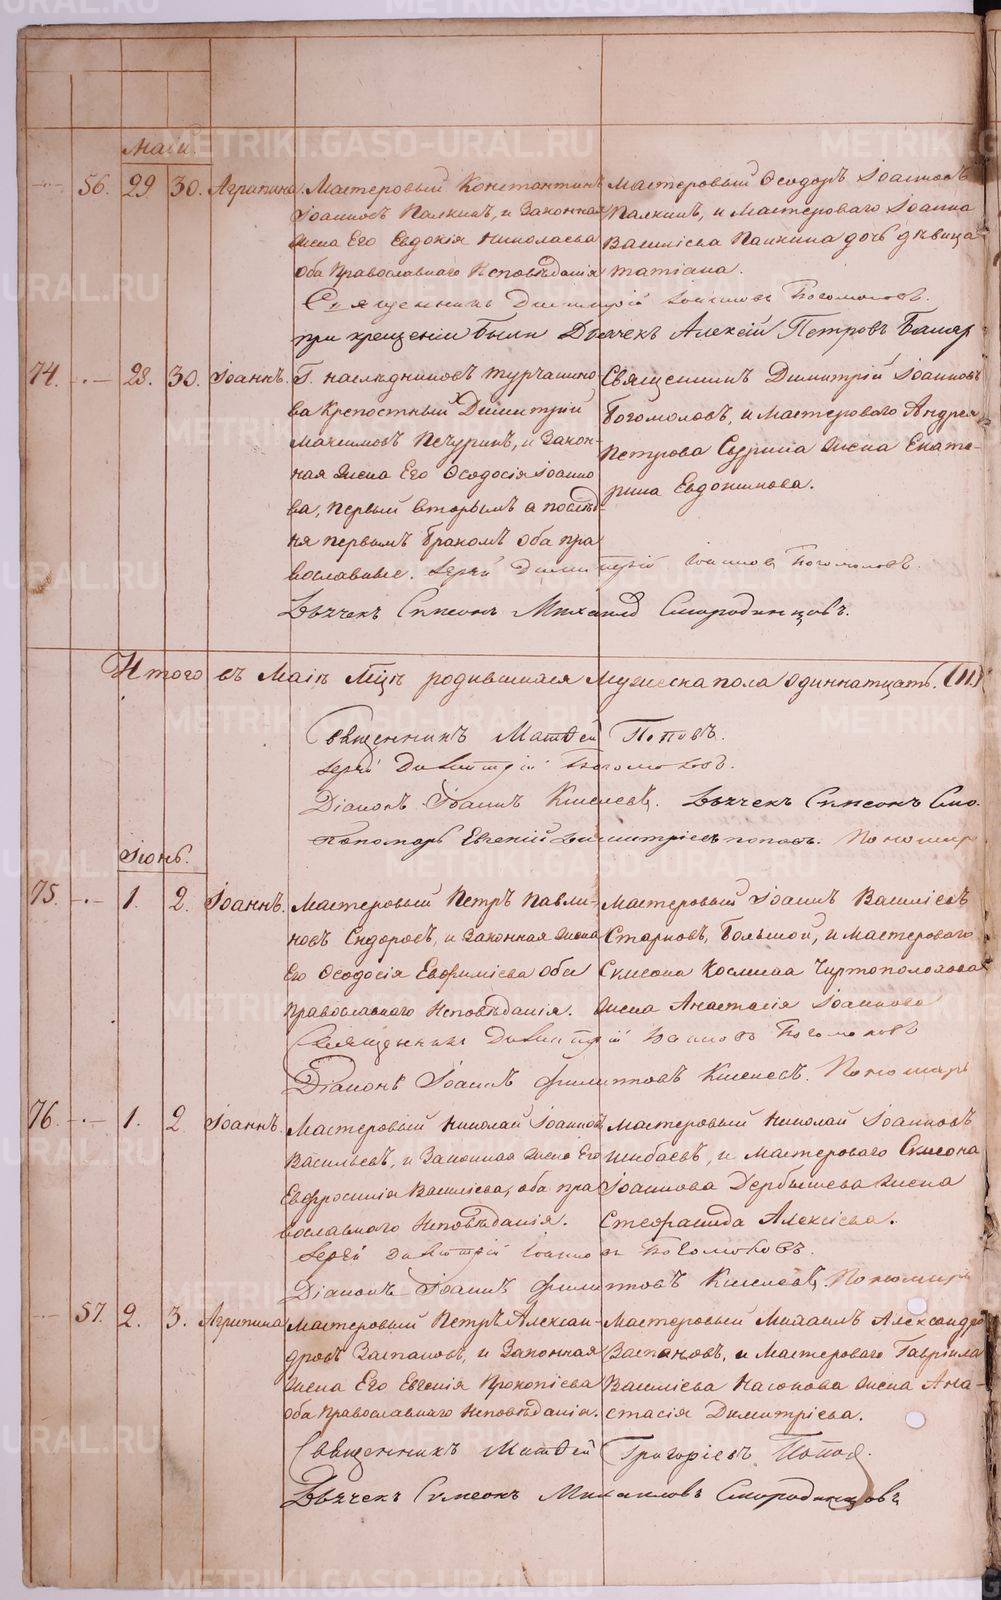 Маій.
56. 29 30. Агрипина. Мастеровый Константинъ
Іоанновъ Палкинъ, и Законная
жена Его Евдокія Николаева
оба Православнаго Исповѣданія
Мастеровый Ѳеодоръ Іоанновъ
Палкинъ, и Мастероваго Іоанна
Василіева Палкина дочь дѣвица
Татіана.
Священникъ Димитрій Іоанновъ Богомоловъ.
при крещеніи были Дьячекъ Алексій Петровъ
74. 28. 30. Іоаннъ. Г. наслѣдниковъ Турчанино
ва Крепостный Димитрій
Максимовъ Печуринъ, и Закон-
ная жена Его Ѳеодосія Іоанно
ва, первый вторымъ а послѣд-
няя первымъ бракомъ оба пра
вославные.
Священникъ Димитрій Іоанновъ
Богомоловъ, и Мастероваго Андрея
Петрова жена Екате-
рина Евдокимова.
Іерей Димитрій Іоанновъ Богомоловъ.
Дьячекъ Симеонъ Михаил Смородинцовъ.
Итого въ Маіѣ Мцѣ родившихся Мужеска пола одиннатцать. (11.)
Священникъ Матѳей Поповъ.
Іерей Димитрій Богомоловъ.
Діаконъ Іоаннъ Киселевъ. Дьячекъ Симеонъ Смо.
Пономарь Евгеній Димитріевъ Поповъ. Пономарь
Іюнь.
75. 1. 2. Іоаннъ. Мастеровый Петръ Павли-
новъ Сидоровъ, и Законная жена
Его Ѳеодосія Евфиміева оба
Православнаго Исповѣданія.
Мастеровый Іоаннъ Василіевъ
Старковъ, Большой, и Мастероваго
Симеона Космина Чиртополохова
жена Анастасія Іоаннова
Священникъ Димитрій Іоанновъ Богомоловъ
Діаконъ Іоаннъ Филипповъ Киселевъ. Пономарь
76. 1. 2. Іоаннъ. Мастеровый Николай Іоанновъ
Васильевъ, и Законная жена Его
Евфросинія Василіева, оба пра
вославного Исповѣданія.
Мастеровый Николай Іоанновъ
Шибаевъ, и Мастероваго Симеона
Іоаннова Дербышева жена
Стефанида Алексіева.
Іерей Димитрій Іоаннов Богомоловъ.
Діаконъ Іоаннъ Филипповъ Киселевъ. Пономарь
57. 2. 3. Агрипина Мастеровый Петръ Алексан-
дровъ Заспановъ, и Законная
жена Его Евгенія Прокопіева
оба Православнаго Исповѣданія.
Мастеровый Михаилъ Александро
Заспановъ, и Мастероваго Гавріила
Василіева Насонова жена Ана-
стасія Димитріева.
Священникъ Матѳей Григоріевъ Попов.
Дьячекъ Симеонъ Михаиловъ Смородинцовъ
METRIKI.GASO-URAL.RU